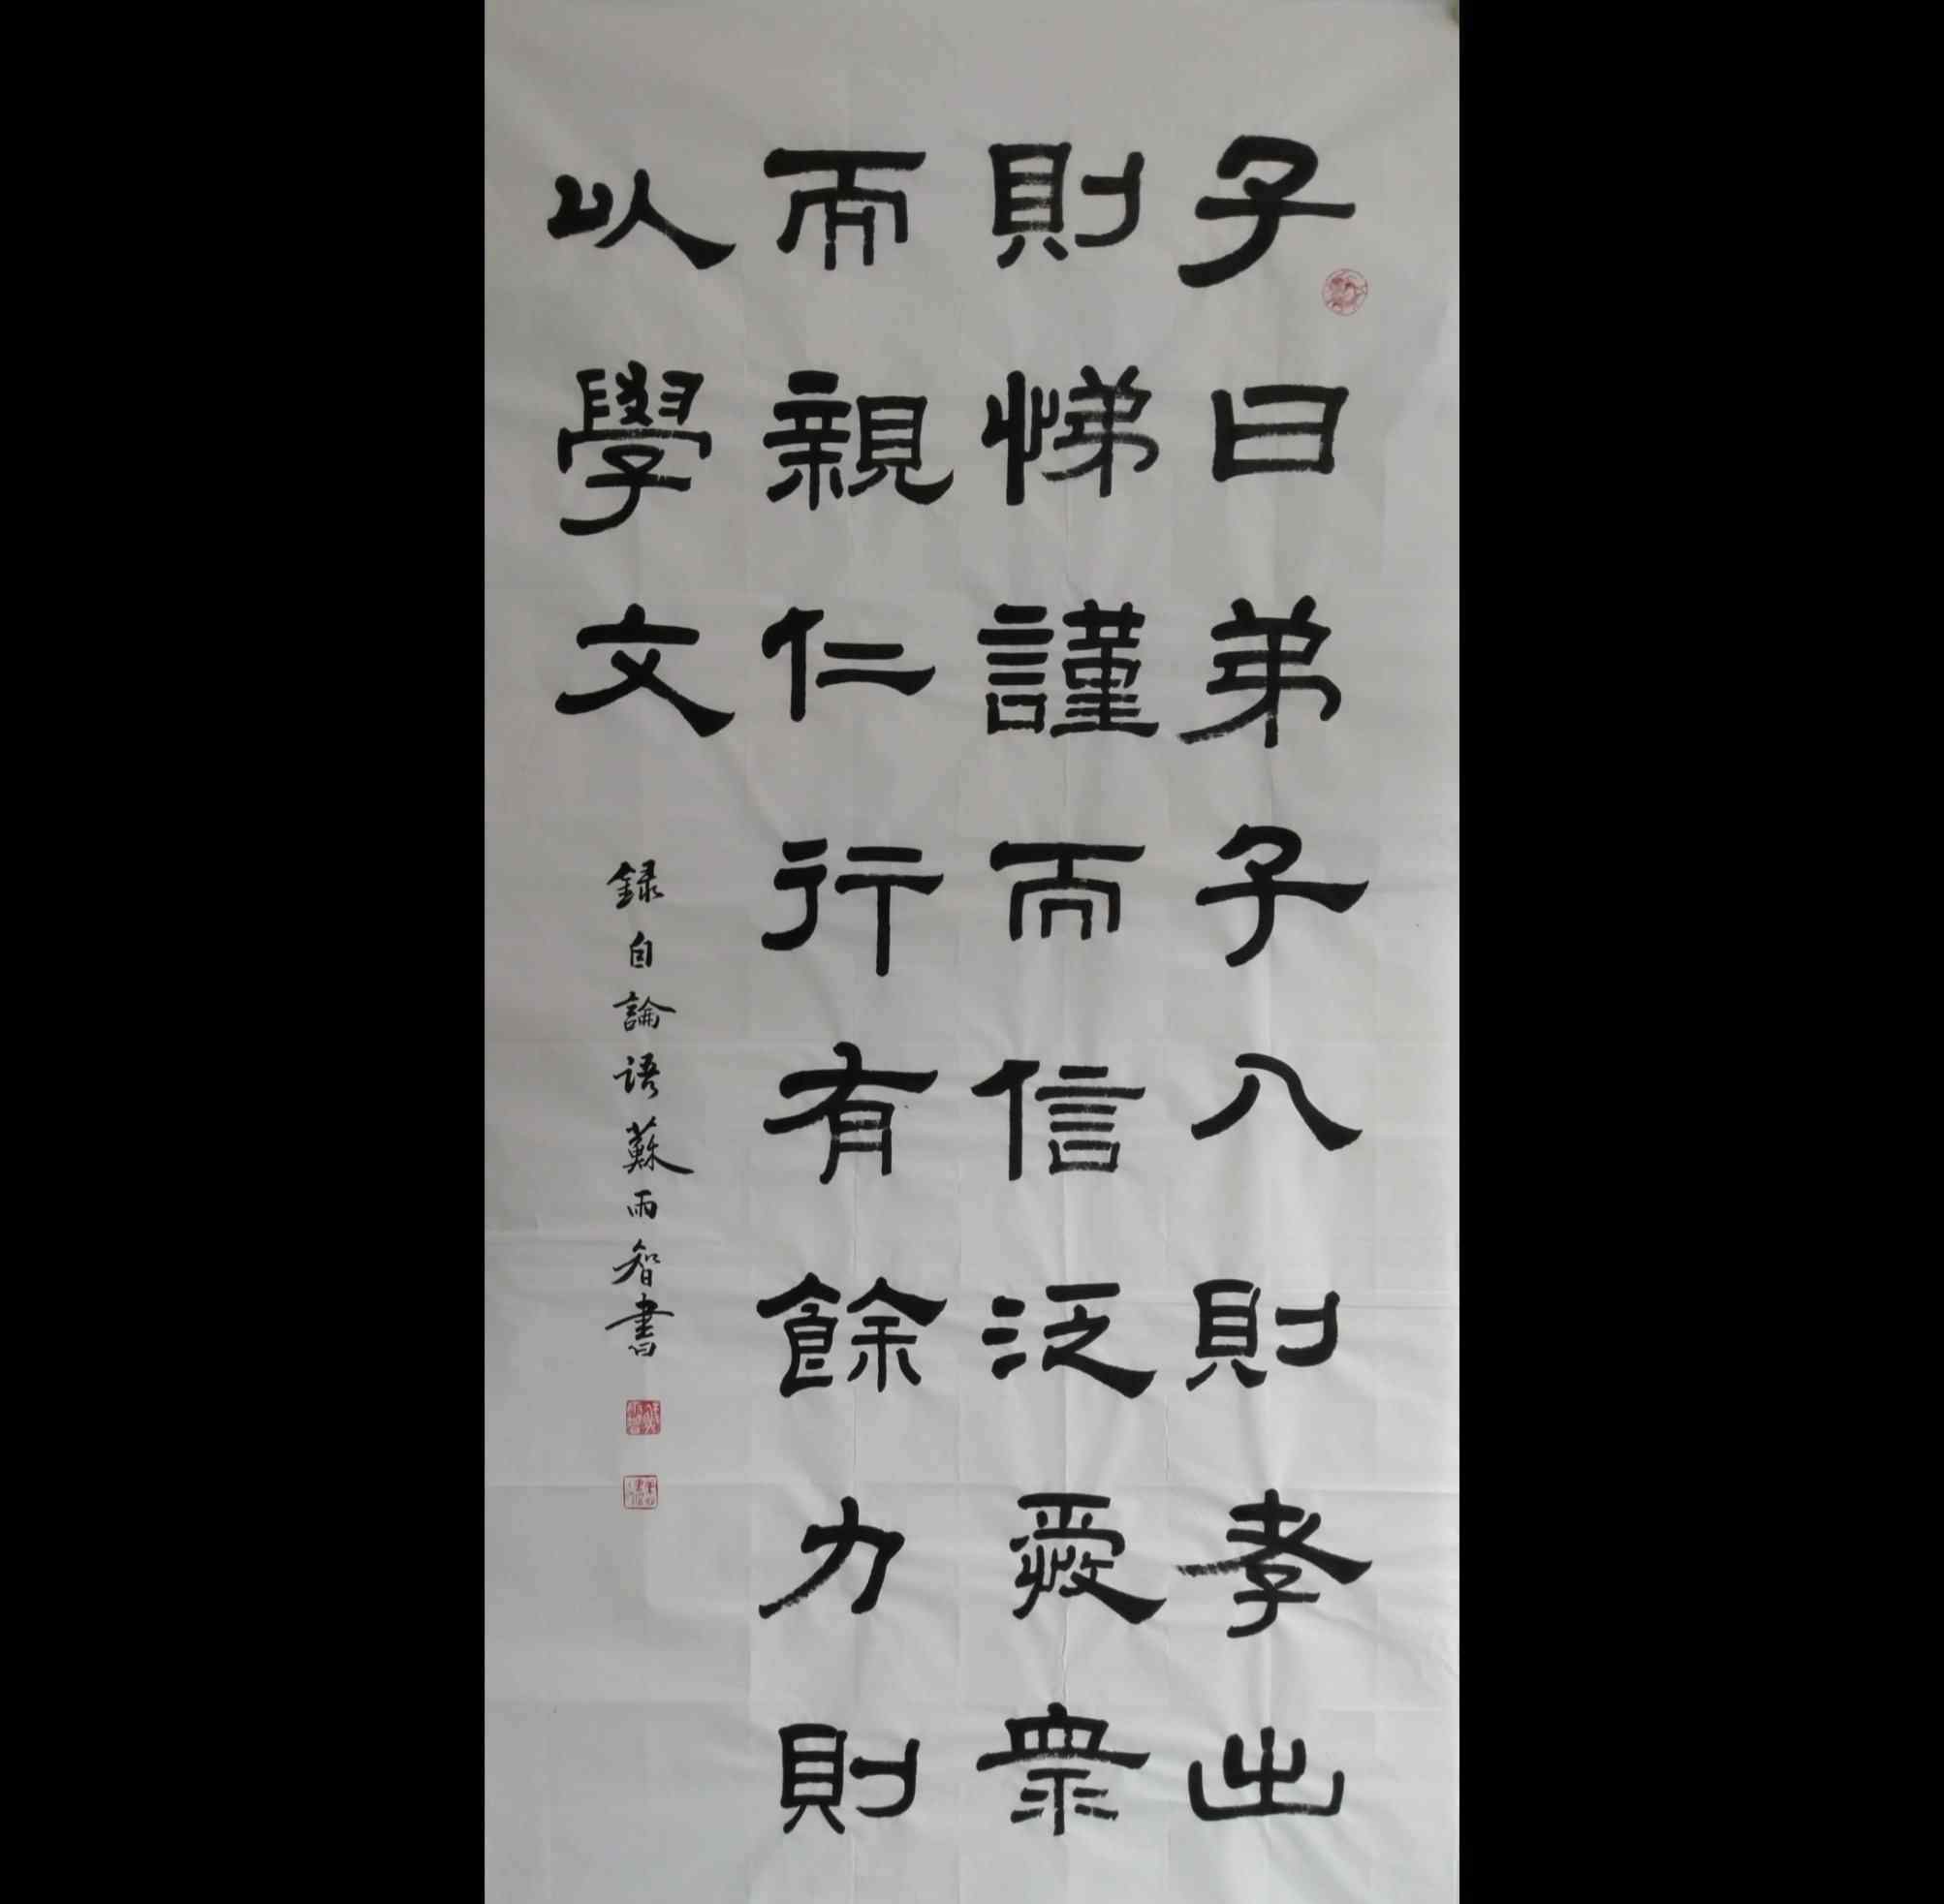 子曰弟子入則孝出
則悌謹而信泛愛衆
而親仁行有餘力則
以學文
録自論语蘇雨智書